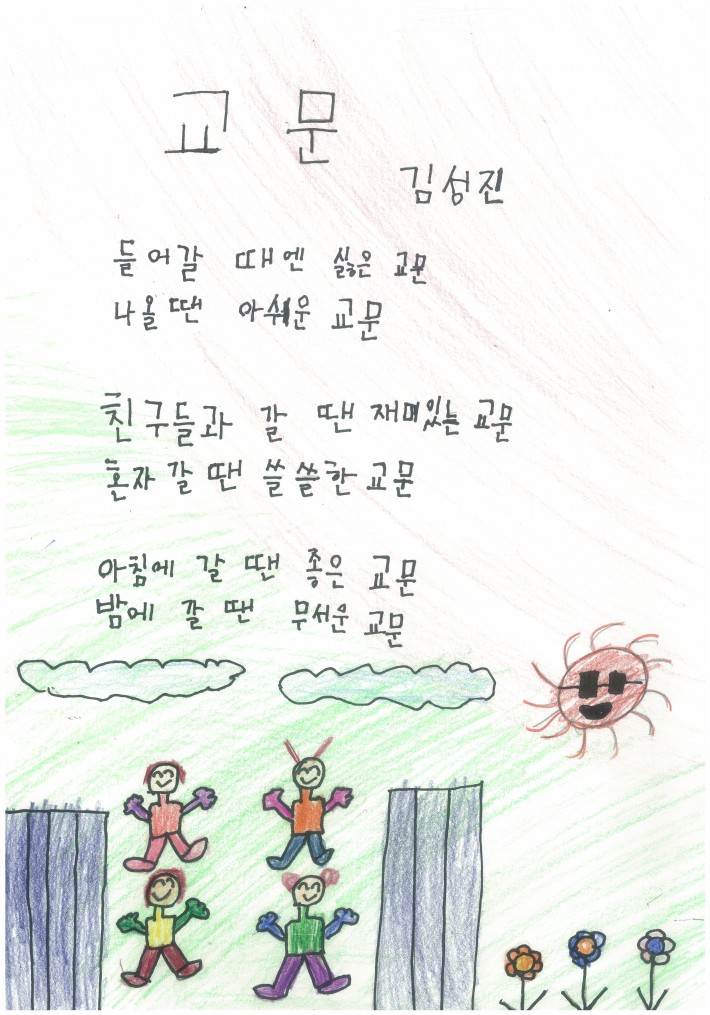 교문
김성진
들어갈 때엔 싫은 교문
나올땐 아쉬운 교문
친구들과 갈 땐 재미있는 교문
혼자 갈 땐 쓸쓸한 교문
아침에 갈 땐 좋은 교문
밤에 갈 땐 무서운 교문